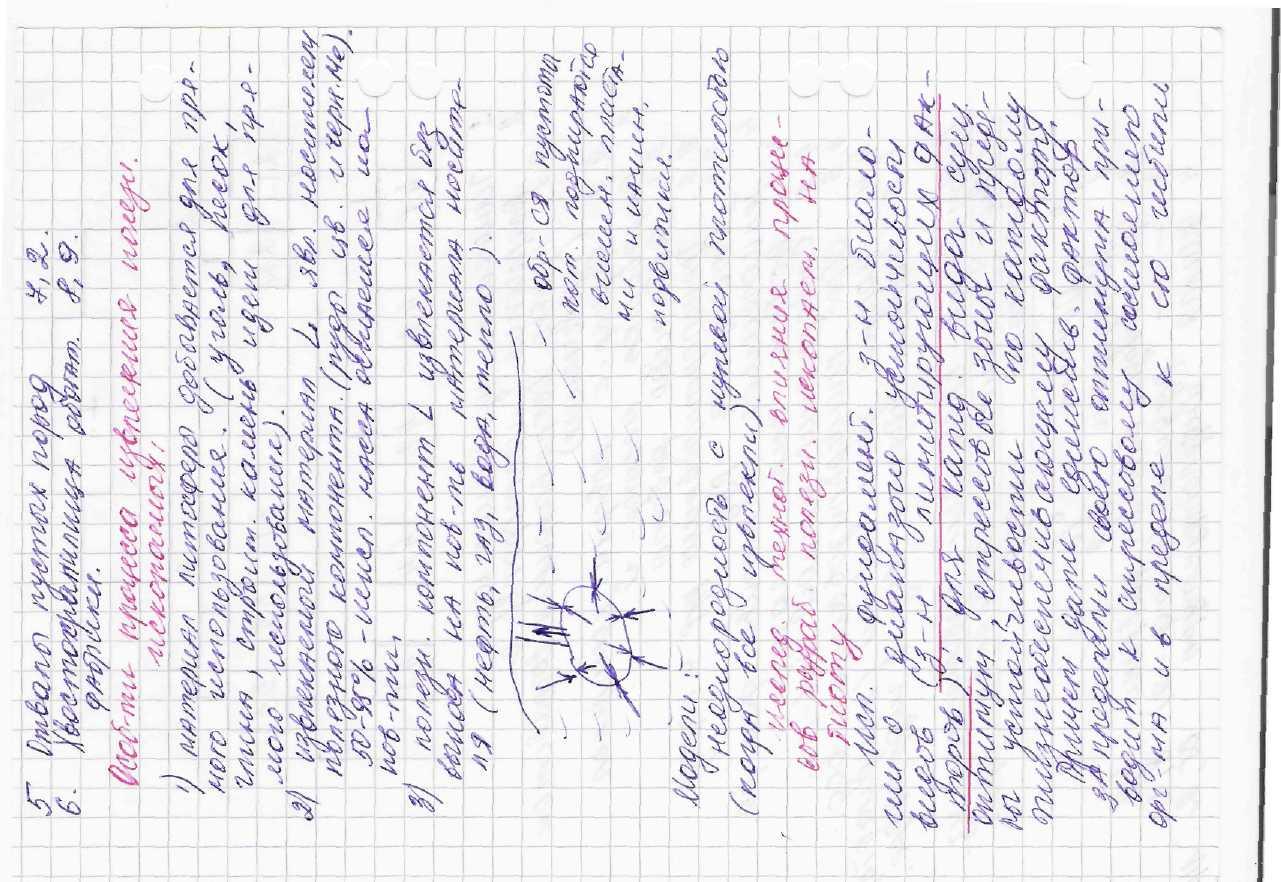 5 Отвалы пустых пород 7,2.
6. Хвостохранилища обогат. 8,9.
фабрики.
Особ-ти процесса извлечения полезн.
ископаемых:
1) материал литосферы добывается для пря-
мого использования. (уголь, песок,
глина, строит. камень идет для пря-
мого использования)
2) извлеченный материал L явл. носителем
полезного компонента. (руды цв. и черн. Me).
50-98% - леисп. масса
пов-ти.
3) полезн. компонент L извлекается без
выноса на пов-ть материала носите-
ля (нефть, газ, вода, тепло).
обр-ся пустоты
кот. поджимаются
вмещен. пласта-
ми и начин.
подвижки.
Модели:
неоднородность с нулевой плотностью
(когда все извлекли).
послед. технол. влияния процес-
сов разраб. полезн. ископаем. на
биоту
Исп. фундамент. з-н биоло-
гии о диапазоне устойчивости
видов (з-н лимитирующих фак-
торов). для кажд. вида сущ.
оптимум, стрессовые зоны и преде-
лы устойчивости по каждому
жизнеобеспечивающему фактору.
Причем даже единств. фактор
за пределами своего оптимума при-
водит к стрессовому состоянию
орг-ма и в пределе к его гибели